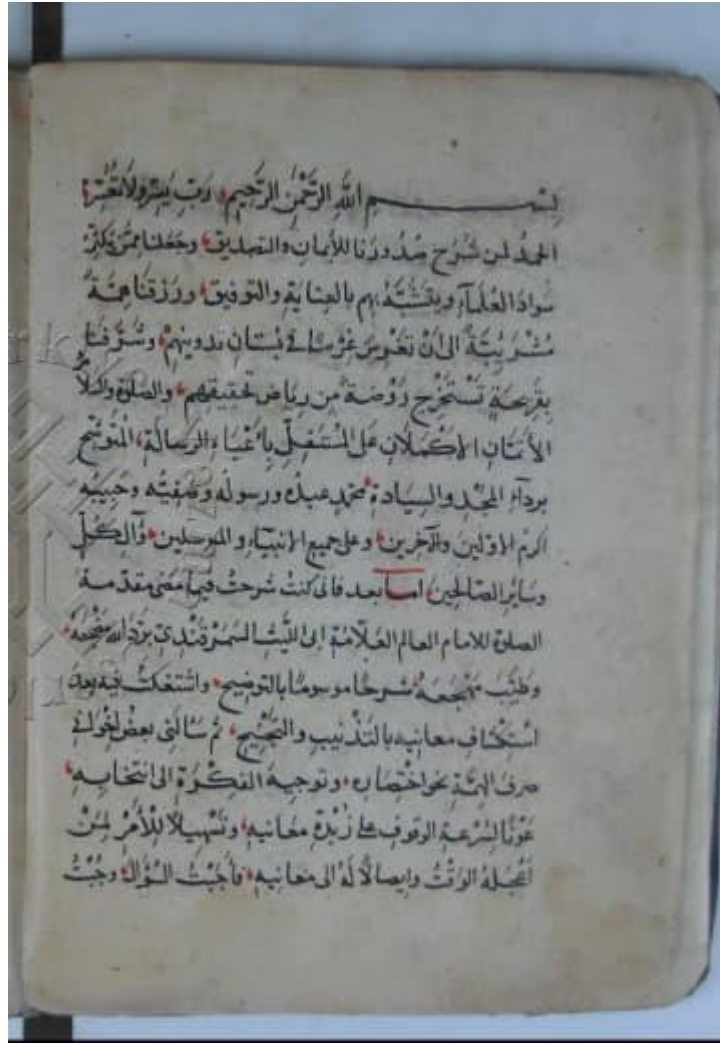 بسم الله الرحمن الرحيم رب يسر ولا تعسر
الحمد لمن شرح صدورنا للايمان والتصديق وجعلنا ممن يكثر
سواد العلماء ويتشبه بهم بالعناية والتوفيق ورزقنا همة
مشرئبة الى ان تغرس غرسا في بستان تدوينهم وشرفنا
بقريحة تستخرج روضة من رياض تحقيقهم والصلوة والسلام
الاتمان الاكملان على المستقل باعباء الرسالة المتوشح
برداء المجد والسيادة محمد عبده ورسوله وصفيه وحبيبه
اكرم الاولين والآخرين وعلى جميع الانبياء والمرسلين وآل كل
وسائر الصالحين اما بعد فانى كنت شرحت فيما مضى مقدمة
الصلوة للامام العالم العلامة ابى الليث السمرقندى برد الله مضجعه
وطيب مهجعه شرحا موسوما بالتوضيح واشتغلت فيه بعد
استكشاف معانيه بالتذنيب والتنجيح ثم سالنى بعض اخوانى
صرف الهمة نحو اختصاره وتوجيه الفكرة الى انتخابه
عونا لسرعة الوقوف على زبدة معانيه وتسهيلا للامر لمن
اعجله الوقت وايصالا له الى معانيه فاجبت السؤال وجبت